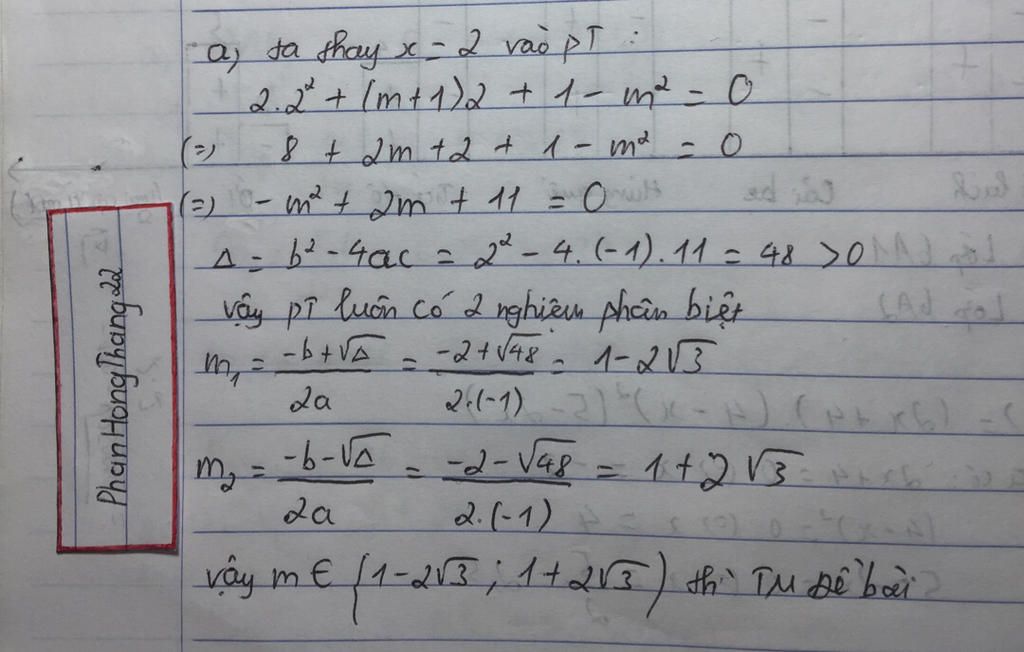 a, ta thay x = 2 vào PT :
2.2² + (m+1)2 + 1 - m² = 0
(=) 8 + 2m + 2 + 1 - m² = 0
(=) - m² + 2m + 11 = 0
Δ = b² - 4ac = 2² - 4.(-1).11 = 48 > 0
vậy PT luôn có 2 nghiệm phân biệt
m₁ = (-b + √Δ)/(2a) = (-2 + √48)/(2.(-1)) = 1 - 2√3
m₂ = (-b - √Δ)/(2a) = (-2 - √48)/(2.(-1)) = 1 + 2√3
vậy m ∈ {1 - 2√3 ; 1 + 2√3} thì TM Đề bài
PhanHongThang22